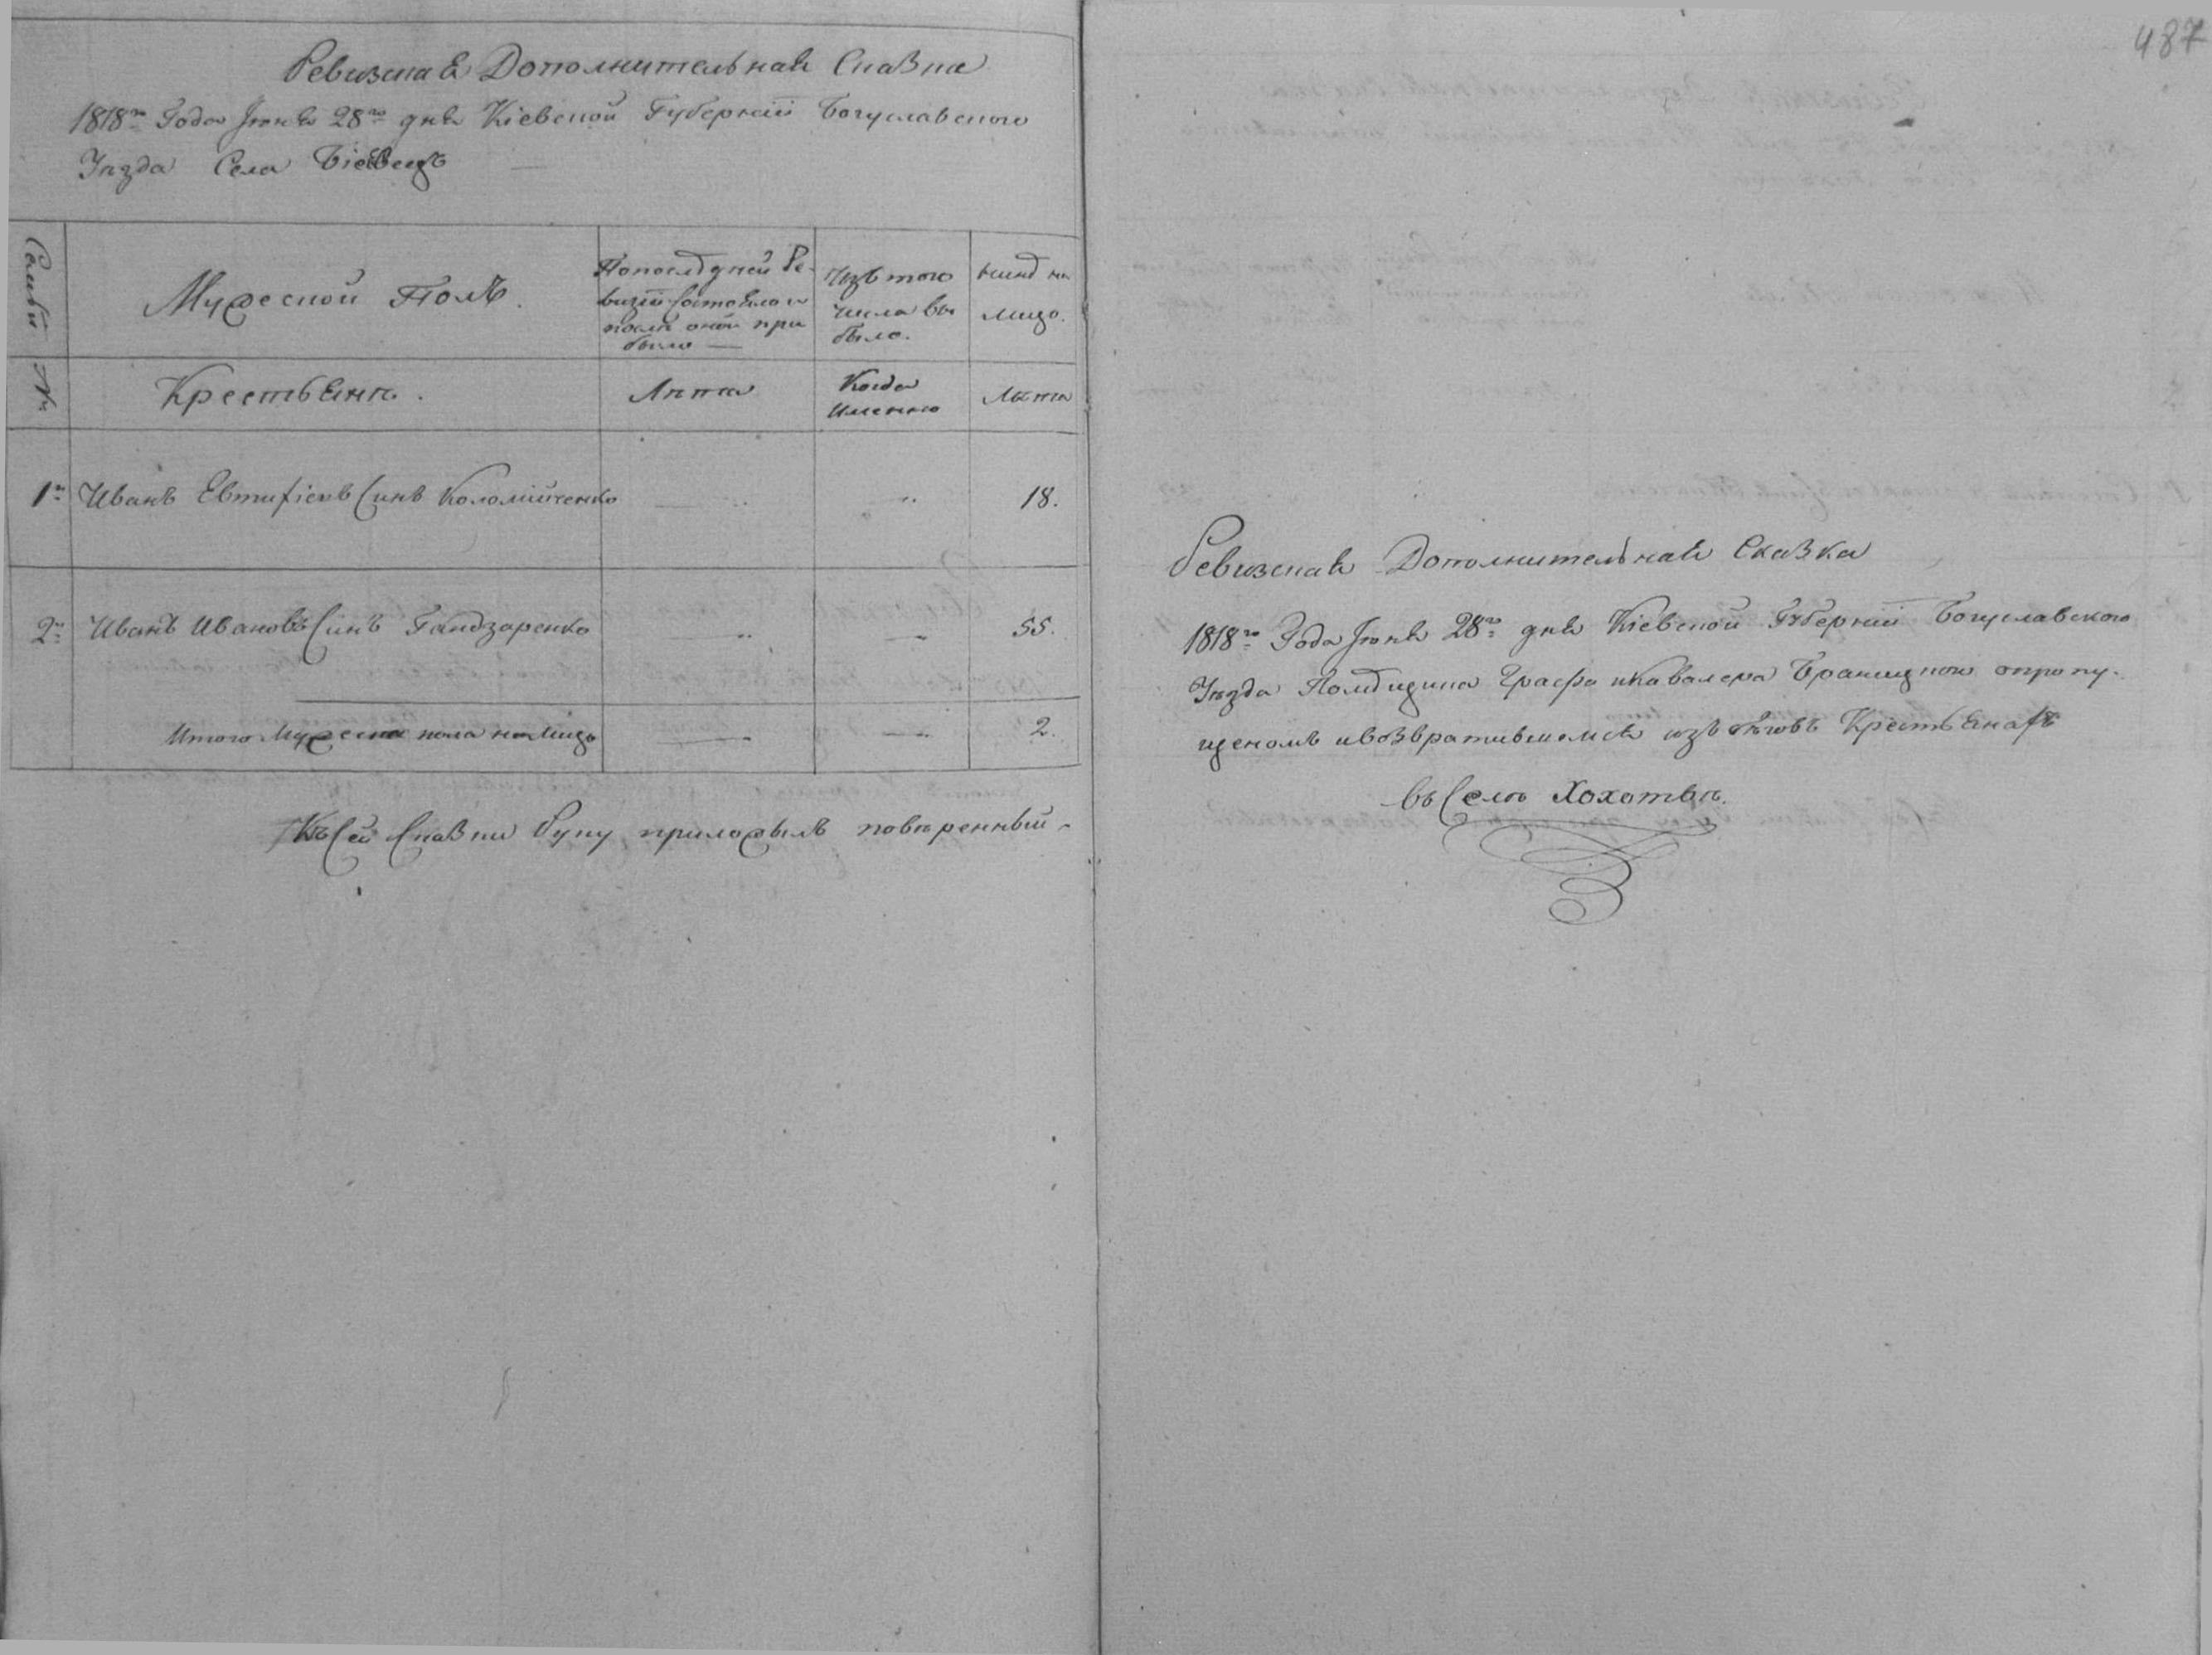 Ревизская Дополнительная Сказка
1818го Года Іюня 28го дня Кіевской Губерніи Богуславского
Уѣзда Села Біевецъ
Семьи №
Мужеской Полъ.
По последней Ре-
визіи состояло и
после оной при
было —
Изъ того
числа вы
было.
ныне на
лицо.
Крестьяне.
Лѣта
Когда
именно
Лѣта
1й Иванъ Евтифіевъ Синъ Коломійченко — .. 18.
2й Иванъ Ивановъ Синъ Гандзаренко .. — 55.
Итого Мужеска пола на лицо — — 2.
Къ Сей Сказки Руку приложылъ повѣренный
487
Ревизская Дополнительная Сказка
1818го Года Іюня 28го дня Кіевской Губерніи Богуславского
Уѣзда Помещика Графа и Кавалера Браницкого о пропу-
щеномъ и возвратившемся изъ бѣговъ Крестьянахъ
въ Селѣ Хохотвѣ.